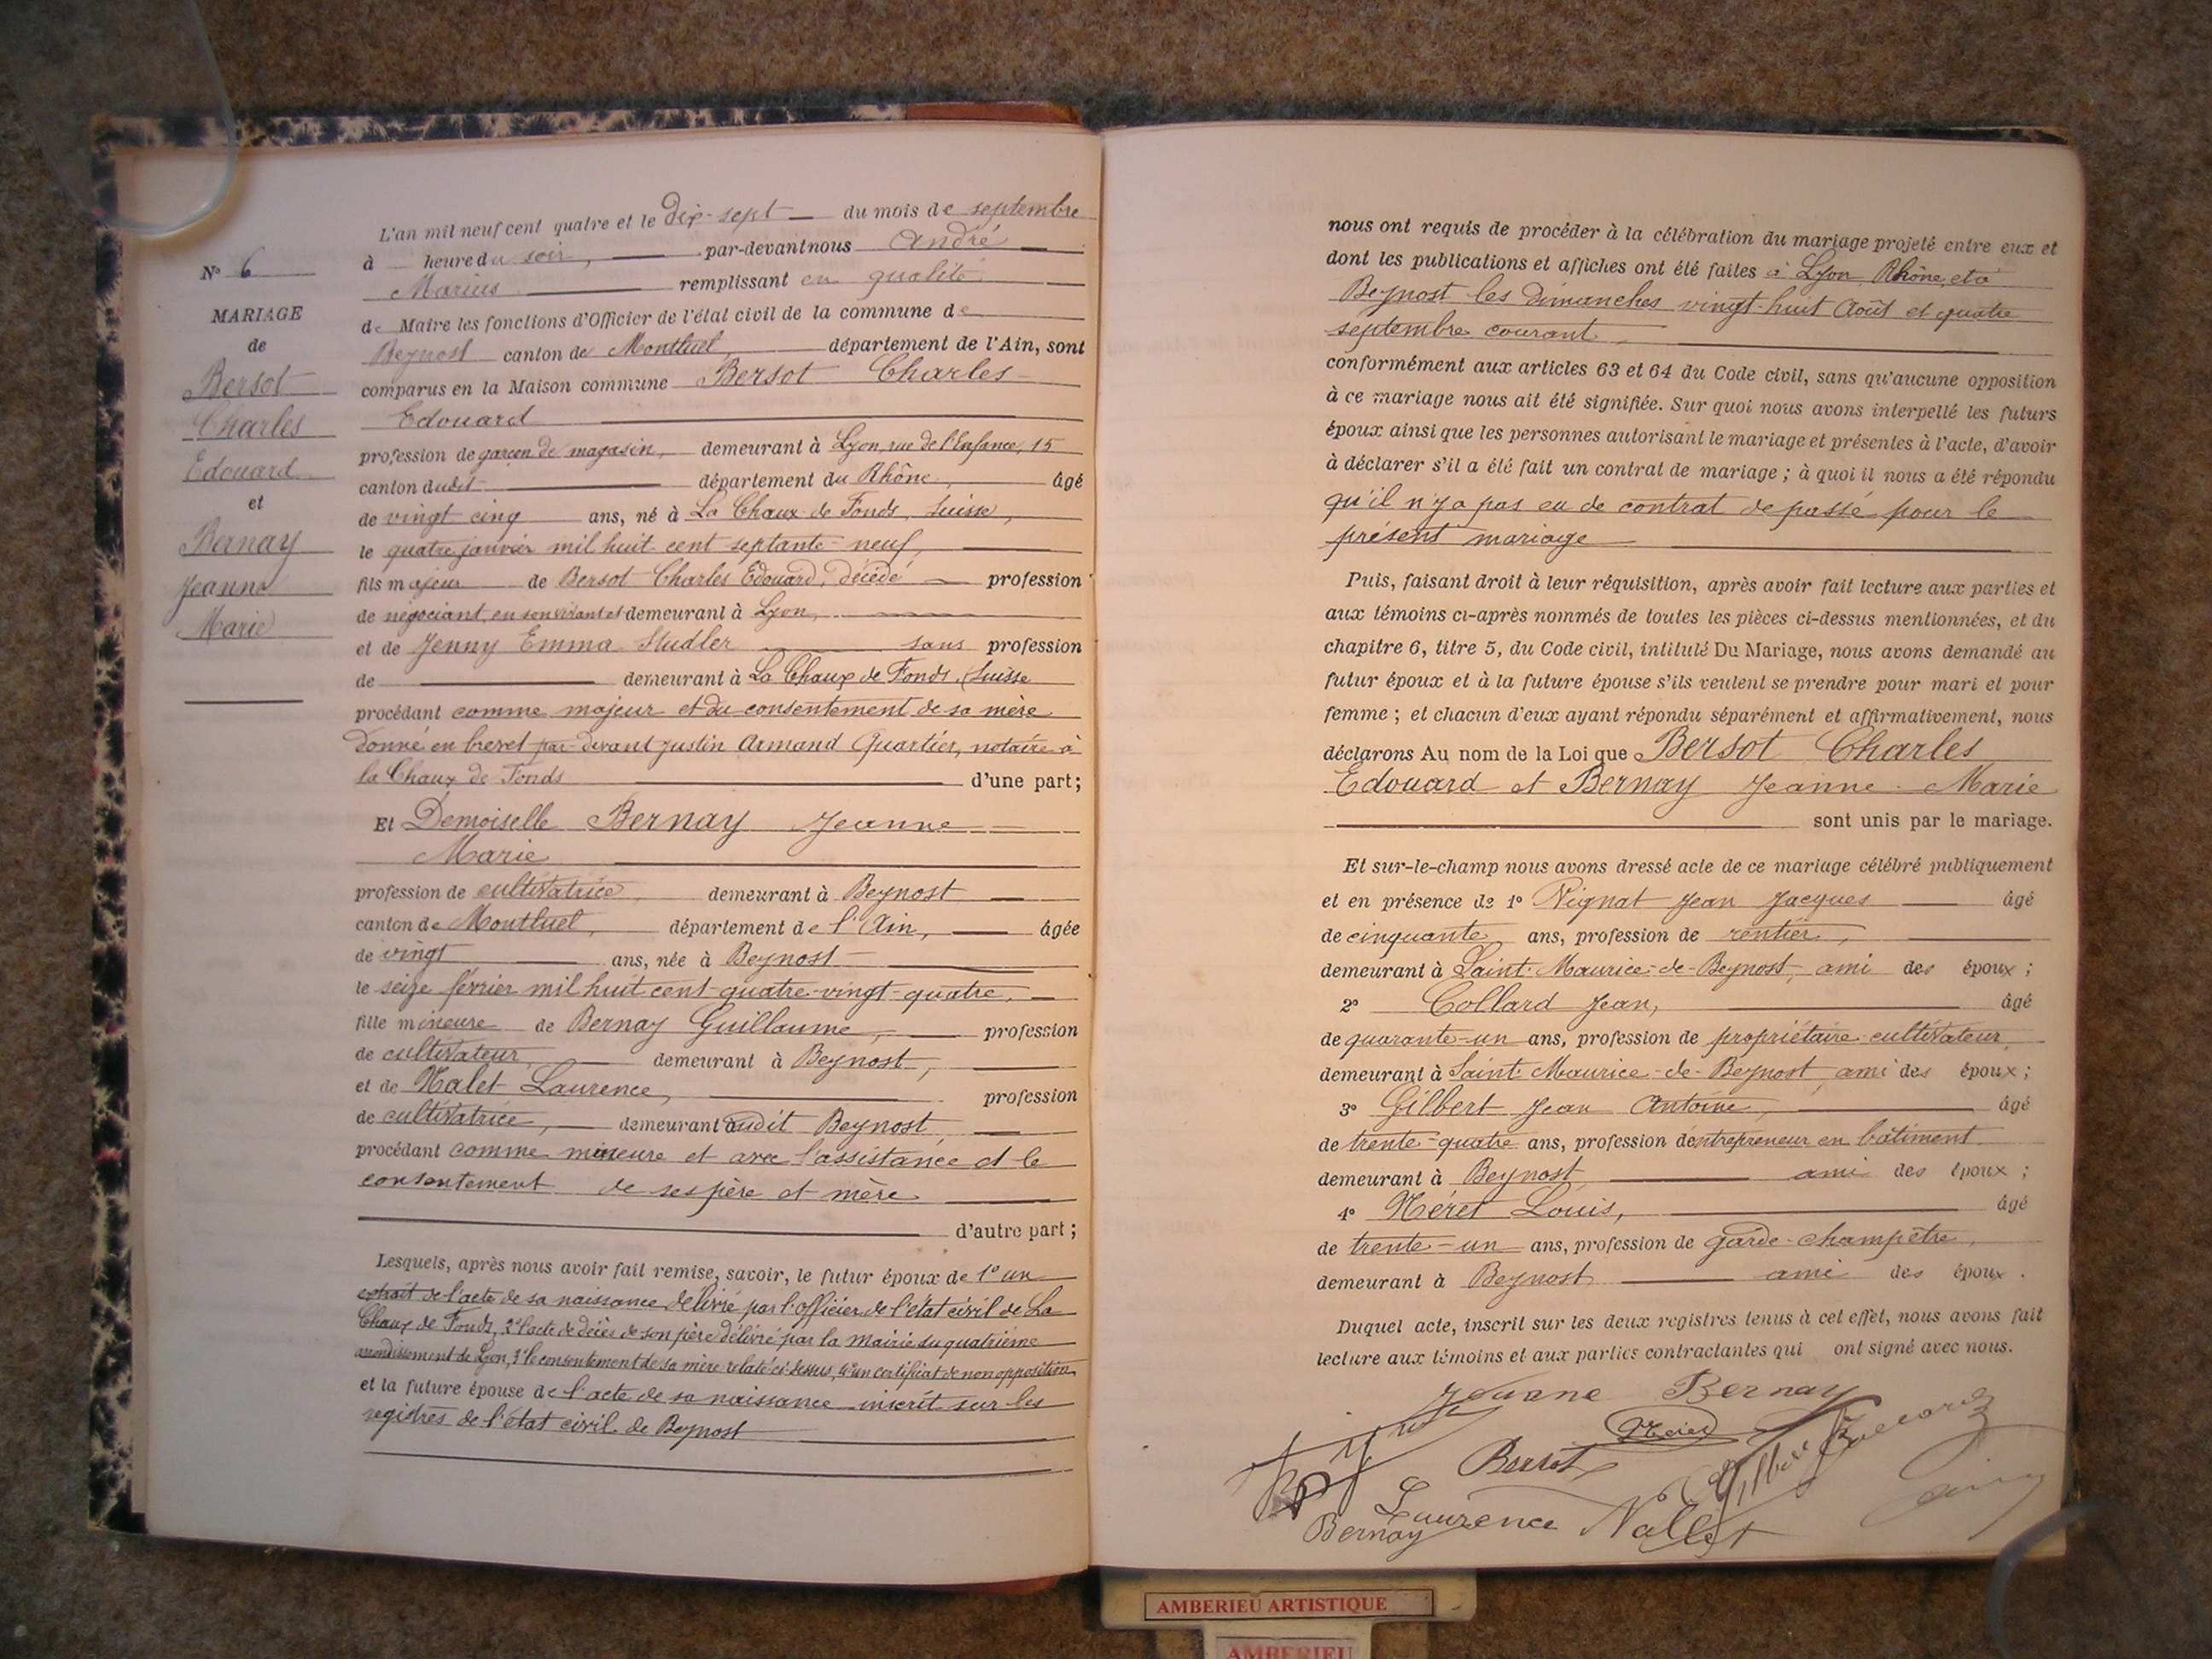 N° 6
MARIAGE
de
Bersot
Charles
Edouard
et
Bernay
Jeanne
Marie
L'an mil neuf cent quatre et le dix-sept du mois de septembre
à heure du soir, par-devant nous André
Marius remplissant en qualité
de Maire les fonctions d'Officier de l'état civil de la commune de
Beynost canton de Montluel, département de l'Ain, sont
comparus en la Maison commune Bersot Charles
Edouard
profession de garçon de magasin, demeurant à Lyon, rue de l'Enfance, 15
canton dudit département du Rhône, âgé
de vingt cinq ans, né à La Chaux de Fonds, Suisse,
le quatre janvier mil huit cent septante-neuf,
fils majeur de Bersot Charles Edouard, décédé profession
de négociant, en son vivant et demeurant à Lyon,
et de Jenny Emma Studler sans profession
de demeurant à La Chaux de Fonds, Suisse
procédant comme majeur et du consentement de sa mère
donné en brevet par-devant Justin Armand Quartier, notaire à
la Chaux de Fonds d'une part;
Et Demoiselle Bernay Jeanne
Marie
profession de cultivatrice, demeurant à Beynost
canton de Montluel, département de l'Ain, âgée
de vingt ans, née à Beynost
le seize février mil huit cent quatre-vingt-quatre,
fille mineure de Bernay Guillaume, profession
de cultivateur, demeurant à Beynost,
et de Nalet Laurence, profession
de cultivatrice, demeurant audit Beynost,
procédant comme mineure et avec l'assistance et le
consentement de ses père et mère
d'autre part;
Lesquels, après nous avoir fait remise, savoir, le futur époux de 1° un
extrait de l'acte de sa naissance délivré par l'officier de l'état civil de La
Chaux de Fonds, 2° l'acte de décès de son père délivré par la mairie du quatrième
arrondissement de Lyon, 3° le consentement de sa mère relaté ci-dessus, 4° un certificat de non opposition
et la future épouse de l'acte de sa naissance inscrit sur les
registres de l'état civil de Beynost
nous ont requis de procéder à la célébration du mariage projeté entre eux et
dont les publications et affiches ont été faites à Lyon, Rhône, et à
Beynost les dimanches vingt-huit Août et quatre
septembre courant
conformément aux articles 63 et 64 du Code civil, sans qu'aucune opposition
à ce mariage nous ait été signifiée. Sur quoi nous avons interpellé les futurs
époux ainsi que les personnes autorisant le mariage et présentes à l'acte, d'avoir
à déclarer s'il a été fait un contrat de mariage; à quoi il nous a été répondu
qu'il n'y a pas eu de contrat de passé pour le
présent mariage
Puis, faisant droit à leur réquisition, après avoir fait lecture aux parties et
aux témoins ci-après nommés de toutes les pièces ci-dessus mentionnées, et du
chapitre 6, titre 5, du Code civil, intitulé Du Mariage, nous avons demandé au
futur époux et à la future épouse s'ils veulent se prendre pour mari et pour
femme; et chacun d'eux ayant répondu séparément et affirmativement, nous
déclarons Au nom de la Loi que Bersot Charles
Edouard et Bernay Jeanne-Marie
sont unis par le mariage.
Et sur-le-champ nous avons dressé acte de ce mariage célébré publiquement
et en présence de 1° Vignat Jean Jacques âgé
de cinquante ans, profession de rentier,
demeurant à Saint-Maurice-de-Beynost, ami des époux;
2° Collard Jean, âgé
de quarante-un ans, profession de propriétaire-cultivateur,
demeurant à Saint-Maurice-de-Beynost, ami des époux;
3° Gilbert Jean Antoine, âgé
de trente-quatre ans, profession d'entrepreneur en bâtiment
demeurant à Beynost ami des époux;
4° Néret Louis, âgé
de trente-un ans, profession de garde-champêtre,
demeurant à Beynost ami des époux.
Duquel acte, inscrit sur les deux registres tenus à cet effet, nous avons fait
lecture aux témoins et aux parties contractantes qui ont signé avec nous.
Jeanne Bernay
Bersot
Gilbert
Laurence Nallet
Bernay
AMBERIEU ARTISTIQUE
AMBERIEU